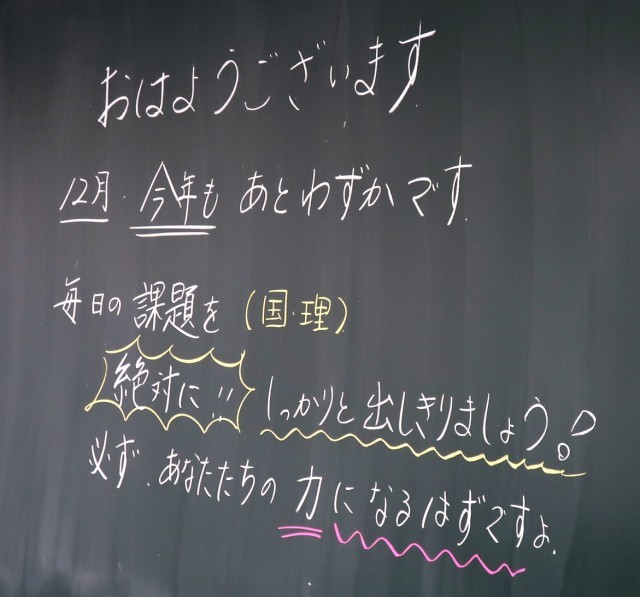 おはようございます
12月.今年も あとわずかです.
毎日の課題を(国・理)
絶対に!! しっかりと出しきりましょう!
必ず.あなたたちの力になるはずですよ.